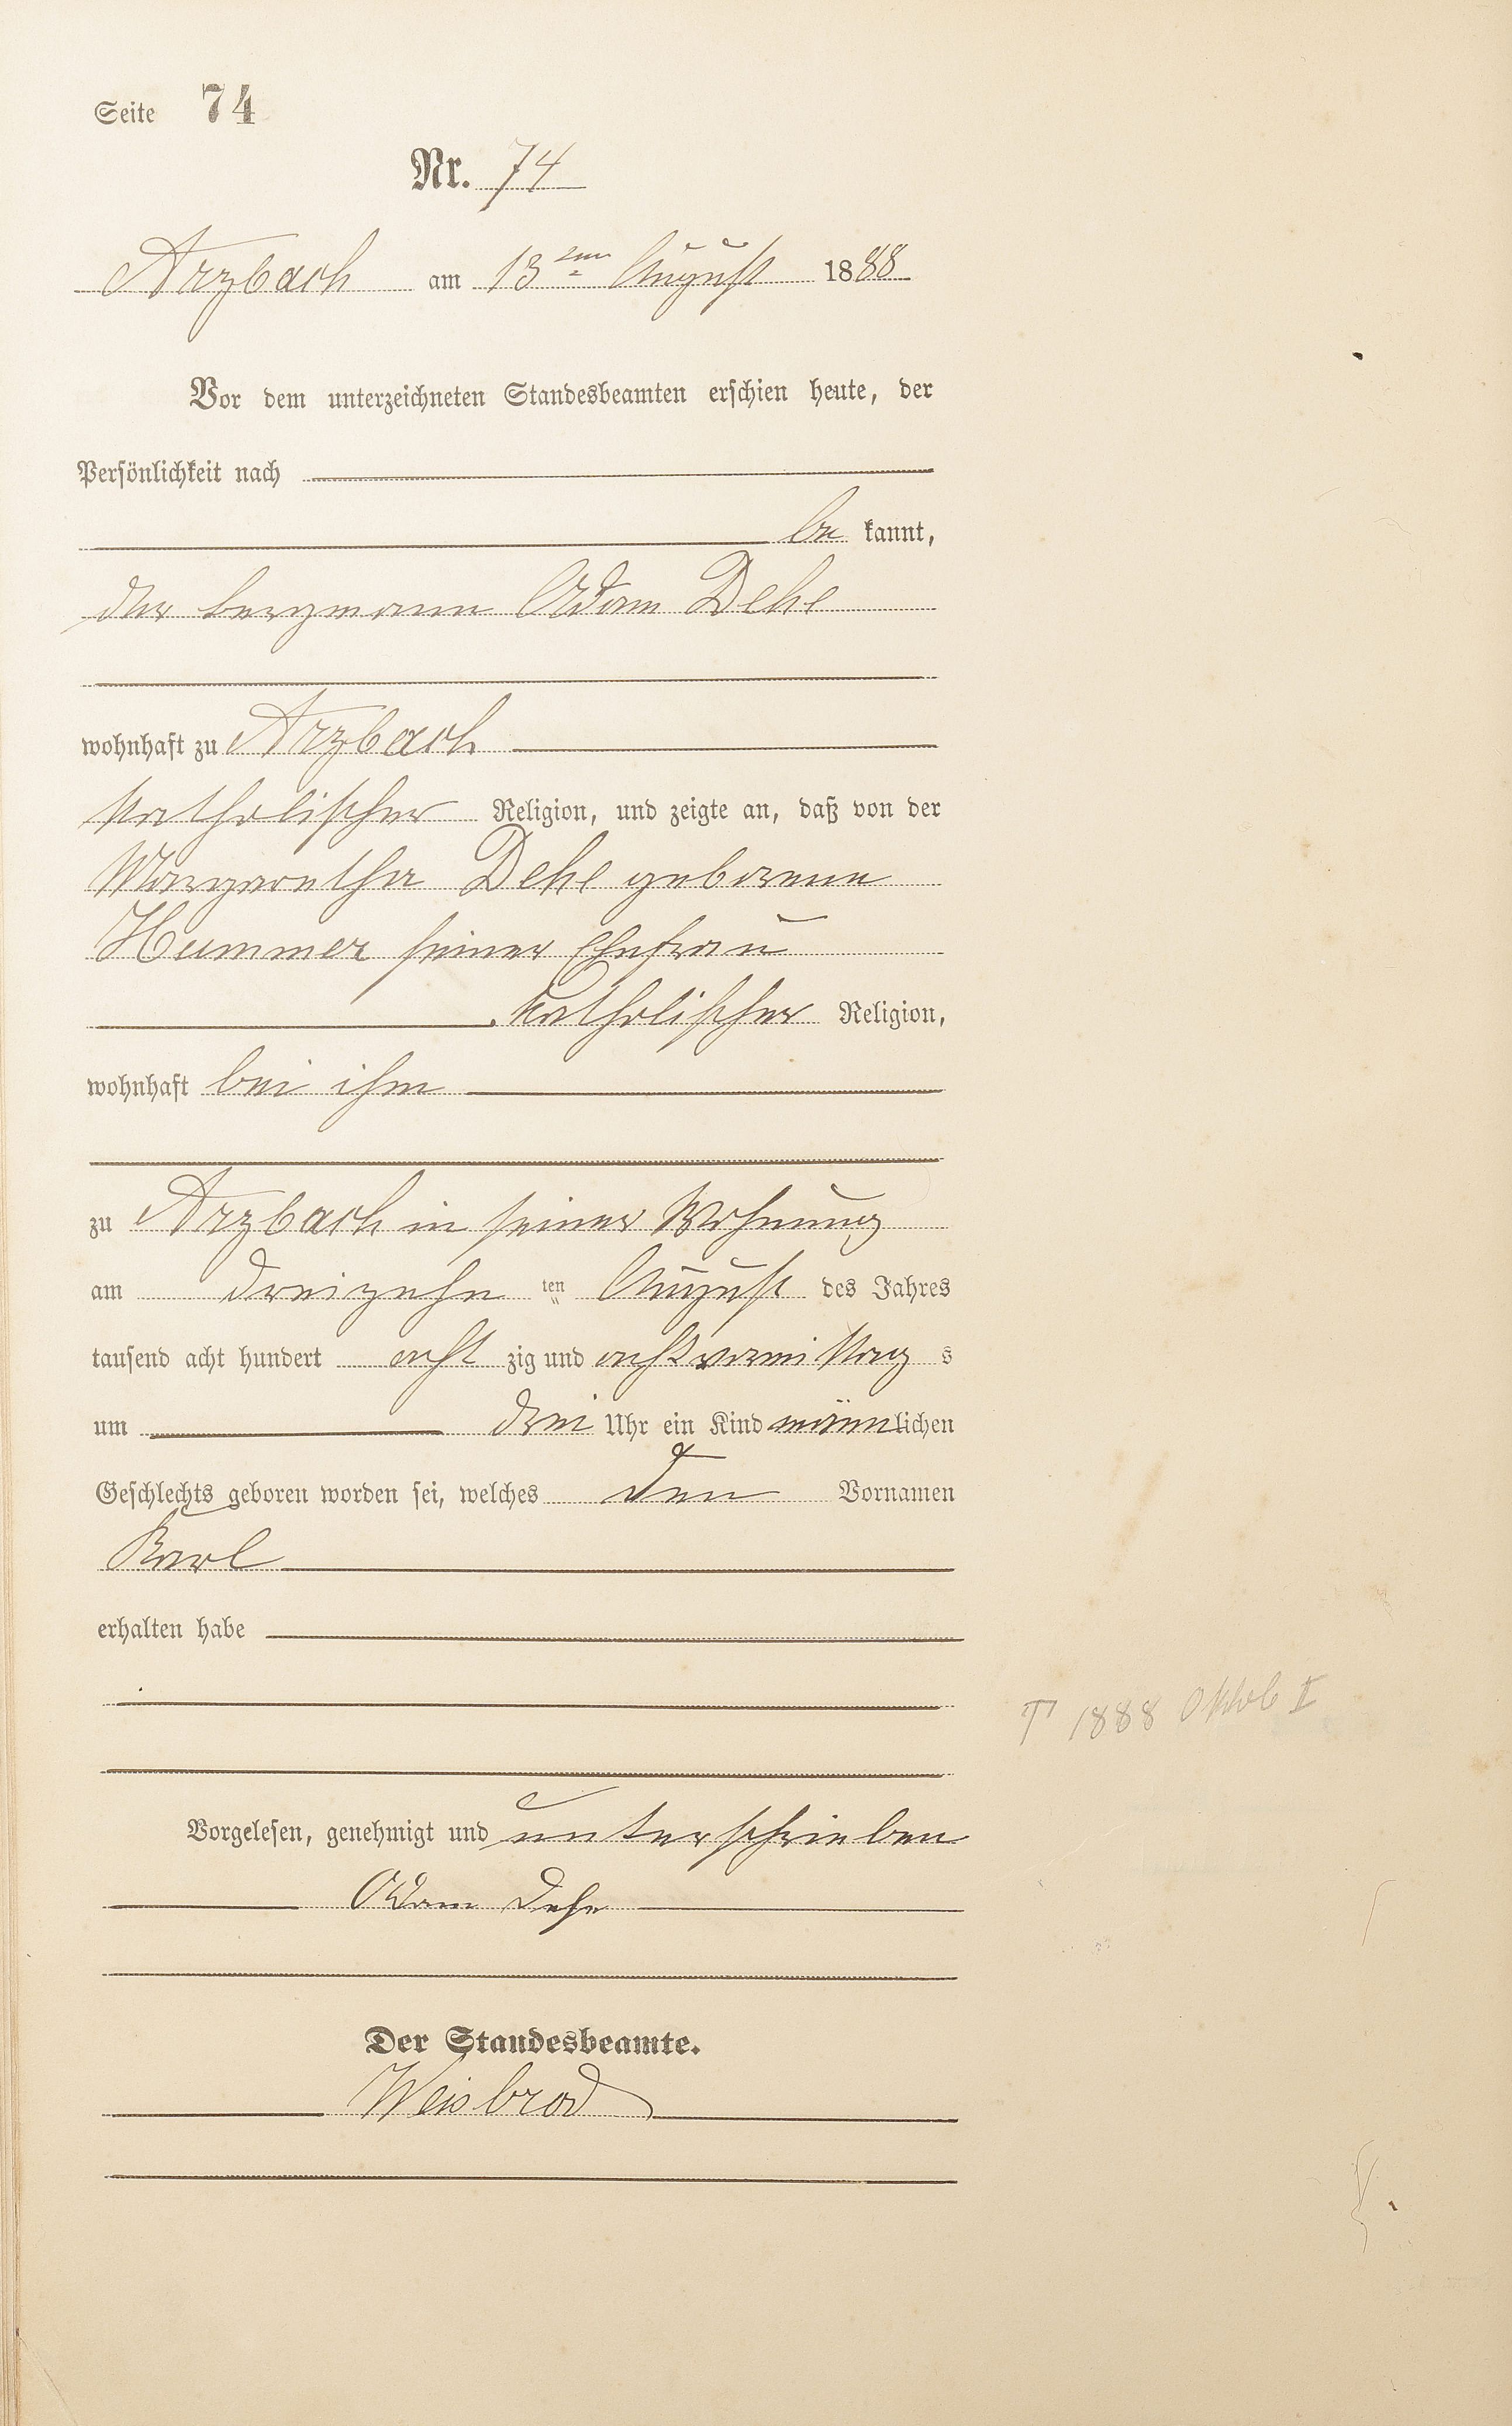 Seite 74
Nr. 74
Arzbach am 13ten August 1888
Vor dem unterzeichneten Standesbeamten erschien heute, der
Persönlichkeit nach
be kannt,
der Bergmann Adam Dehe
wohnhaft zu Arzbach
katholischer Religion, und zeigte an, daß von der
Margaretha Dehe geborene
Hummer seiner Ehefrau
katholischer Religion,
wohnhaft bei ihm
zu Arzbach in seiner Wohnung
am dreizehn ten August des Jahres
tausend acht hundert acht zig und acht vormittag s
um drei Uhr ein Kind männlichen
Geschlechts geboren worden sei, welches den Vornamen
Karl
erhalten habe
T 1888 Oktob II
Vorgelesen, genehmigt und unterschrieben
Adam Dehe
Der Standesbeamte.
Weisbrod